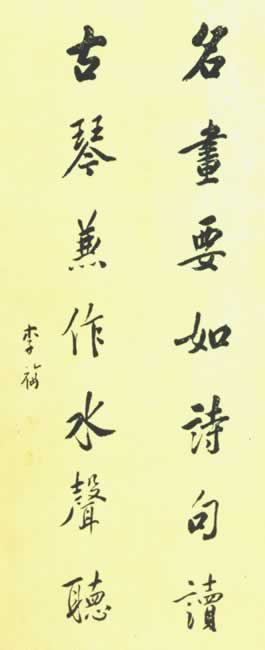 名畫要如詩句讀
古琴兼作水聲聽
李